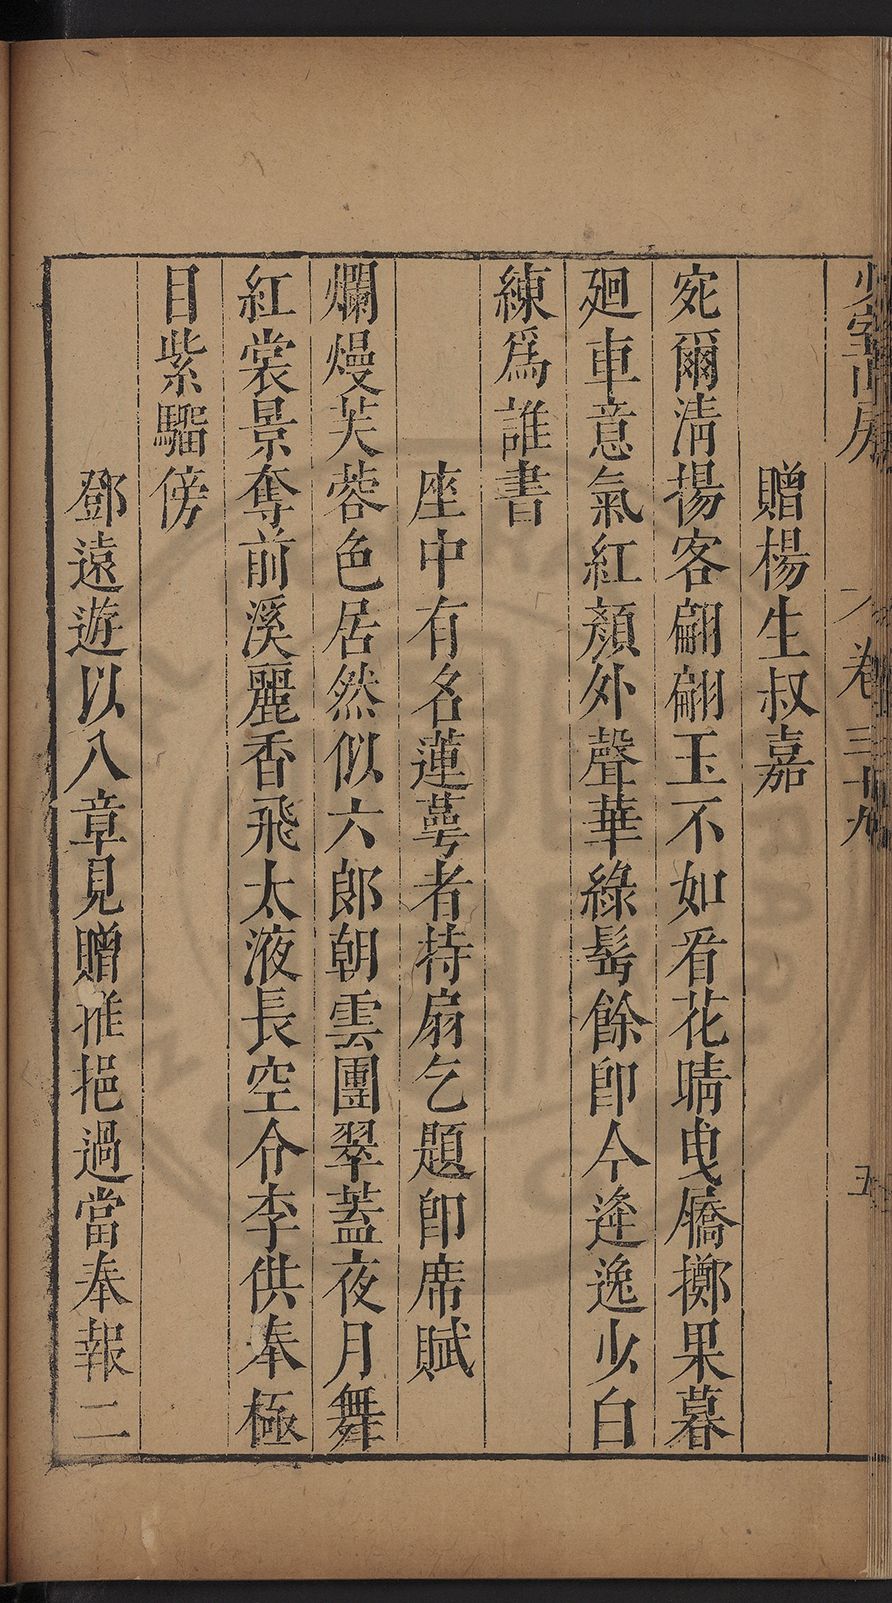 少室山房 卷三十九 五
贈楊生叔嘉
宛爾清揚客翩翩玉不如看花晴曳屩擲果暮
廻車意氣紅顏外聲華綠髩餘卽今逢逸少白
練爲誰書
座中有名蓮蕚者持扇乞題卽席賦
爛熳芙蓉色居然似六郎朝雲團翠蓋夜月舞
紅裳景奪前溪麗香飛太液長空令李供奉極
目紫騮傍
鄧遠遊以八章見贈推挹過當奉報二